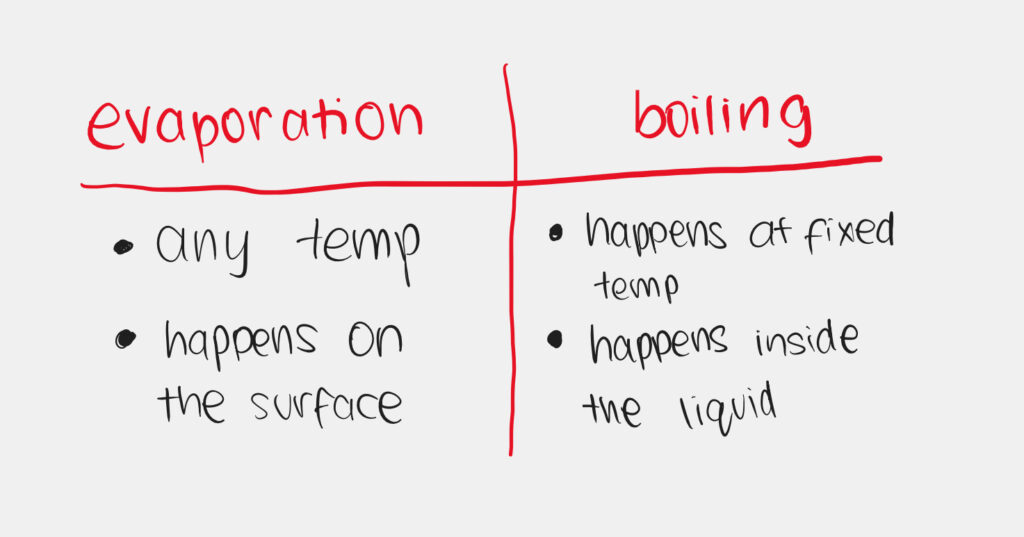 evaporation
• any temp
• happens on
the surface
boiling
• happens at fixed
temp
• happens inside
the liquid